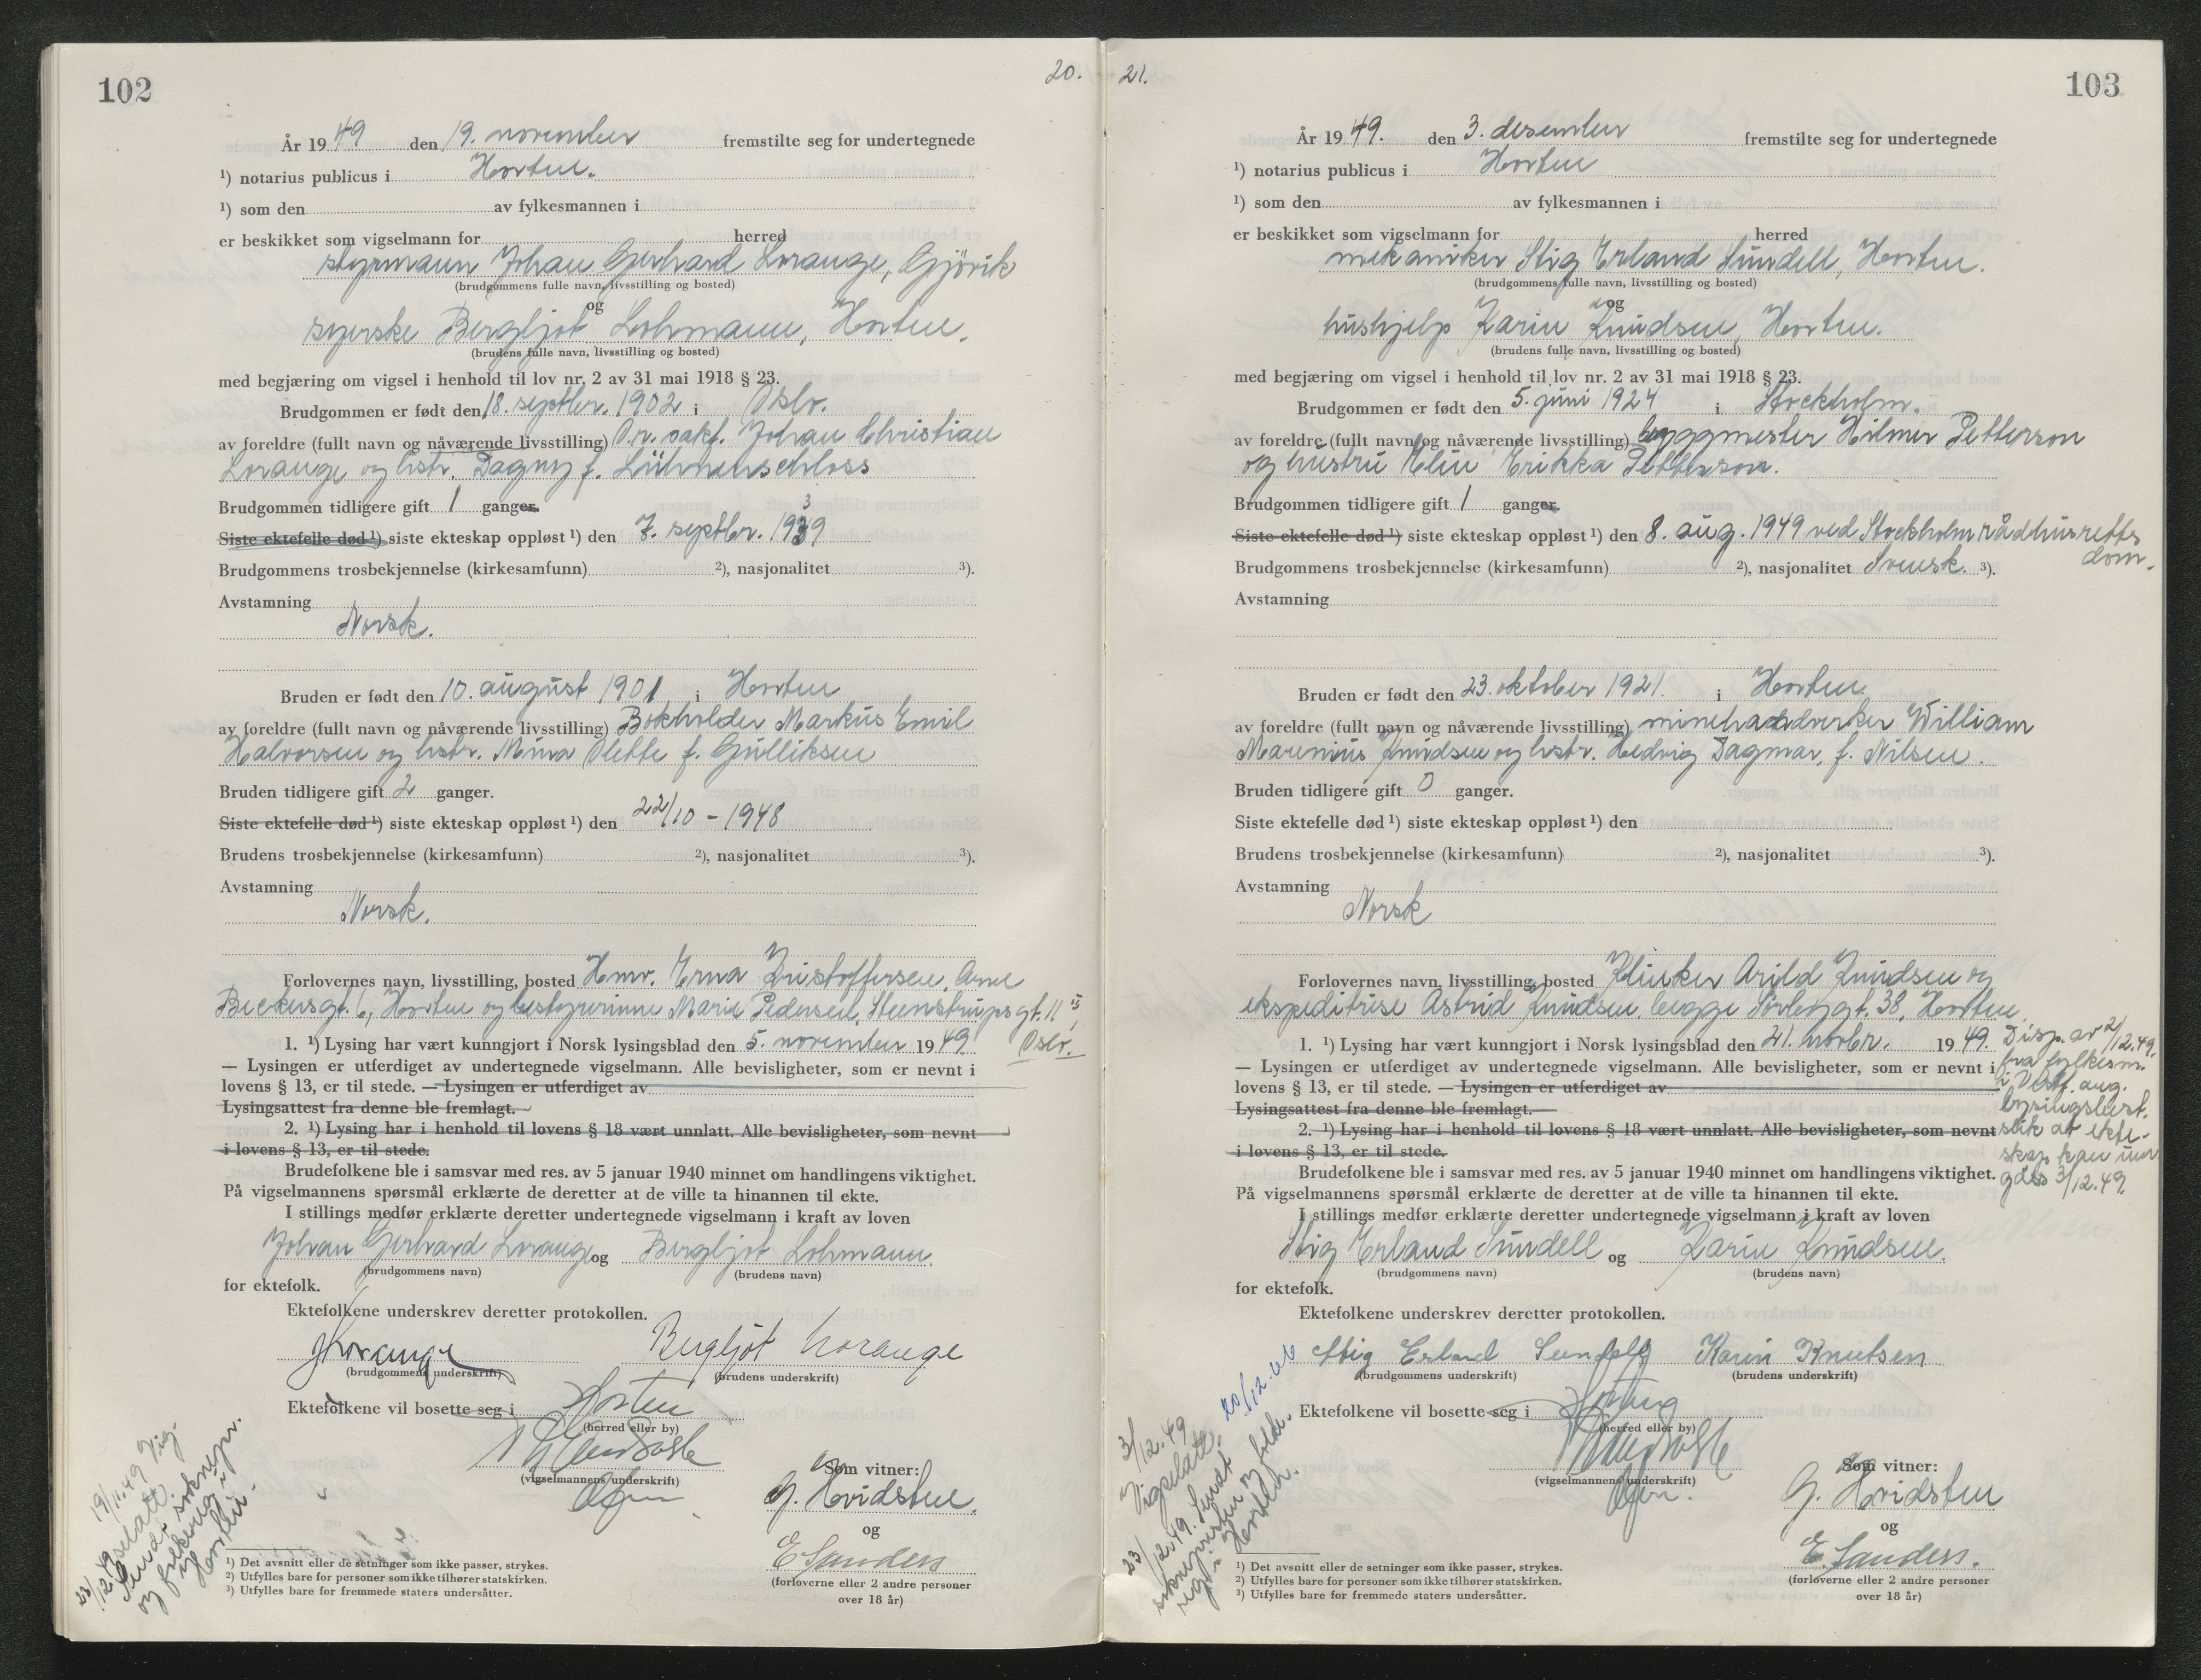 102
20.
År 1949 den 19. november fremstilte seg for undertegnede
¹) notarius publicus i Horten.
¹) som den av fylkesmannen i
er beskikket som vigselmann for herred
styrmann Johan Gerhard Lorange, Gjövik
(brudgommens fulle navn, livsstilling og bosted)
og
syerske Bergljot Lohmann, Horten.
(brudens fulle navn, livsstilling og bosted)
med begjæring om vigsel i henhold til lov nr. 2 av 31 mai 1918 § 23.
Brudgommen er født den 18. septbr. 1902 i Oslo.
av foreldre (fullt navn og nåværende livsstilling) O.r. sakf. Johan Christian
Lorange og hstr. Dagny f. Lühmenschloss
Brudgommen tidligere gift 1 ganger.
Siste ektefelle død ¹) siste ekteskap oppløst ¹) den 7. septbr. 1939
Brudgommens trosbekjennelse (kirkesamfunn) ²), nasjonalitet ³).
Avstamning
Norsk.
Bruden er født den 10. august 1901 i Horten
av foreldre (fullt navn og nåværende livsstilling) Bokholder Markus Emil
Halvorsen og hstr. Mina Olette f. Gulliksen
Bruden tidligere gift 2 ganger.
Siste ektefelle død ¹) siste ekteskap oppløst ¹) den 22/10 - 1948
Brudens trosbekjennelse (kirkesamfunn) ²), nasjonalitet ³).
Avstamning
Norsk.
Forlovernes navn, livsstilling, bosted Hmr. Erna Kristoffersen, Arne
Bickersgt. 6, Horten og bestyrerinne Marie Pedersen, Steenstrupsgt. 11
Oslo.
1. ¹) Lysing har vært kunngjort i Norsk lysingsblad den 5. november 1949
— Lysingen er utferdiget av undertegnede vigselmann. Alle bevisligheter, som er nevnt i
lovens § 13, er til stede. — Lysingen er utferdiget av
Lysingsattest fra denne ble fremlagt.
2. ¹) Lysing har i henhold til lovens § 18 vært unnlatt. Alle bevisligheter, som nevnt
i lovens § 13, er til stede.
Brudefolkene ble i samsvar med res. av 5 januar 1940 minnet om handlingens viktighet.
På vigselmannens spørsmål erklærte de deretter at de ville ta hinannen til ekte.
I stillings medfør erklærte deretter undertegnede vigselmann i kraft av loven
Johan Gerhard Lorange og Bergljot Lohmann.
(brudgommens navn) (brudens navn)
for ektefolk.
Ektefolkene underskrev deretter protokollen.
JLorange Bergljot Lorange
(brudgommens underskrift) (brudens underskrift)
Ektefolkene vil bosette seg i Horten
(herred eller by)
(vigselmannens underskrift)
Som vitner:
G. Hvidsten.
og
E Sanders
(forloverne eller 2 andre personer
over 18 år)
19/11.49 Vig-
selatt.
23/12.49
Sendt soknepr.
og folkereg. i
Horten.
¹) Det avsnitt eller de setninger som ikke passer, strykes.
²) Utfylles bare for personer som ikke tilhører statskirken.
³) Utfylles bare for fremmede staters undersåtter.
21.
103
År 1949. den 3. desember fremstilte seg for undertegnede
¹) notarius publicus i Horten
¹) som den av fylkesmannen i
er beskikket som vigselmann for herred
mekaniker Stig Erland Sundell, Horten.
(brudgommens fulle navn, livsstilling og bosted)
og
hushjelp Karin Knudsen, Horten.
(brudens fulle navn, livsstilling og bosted)
med begjæring om vigsel i henhold til lov nr. 2 av 31 mai 1918 § 23.
Brudgommen er født den 5. juni 1924 i Stockholm.
av foreldre (fullt navn og nåværende livsstilling) byggmester Hilmer Petterson
og hustru Elin Erikka Petterson.
Brudgommen tidligere gift 1 ganger.
Siste ektefelle død ¹) siste ekteskap oppløst ¹) den 8. aug. 1949 ved Stockholm rådhusretts
dom.
Brudgommens trosbekjennelse (kirkesamfunn) ²), nasjonalitet Svensk. ³).
Avstamning
Bruden er født den 23. oktober 1921. i Horten.
av foreldre (fullt navn og nåværende livsstilling) minehandverker William
Marenius Knudsen og hstr. Hedvig Dagmar, f. Nilsen.
Bruden tidligere gift 0 ganger.
Siste ektefelle død ¹) siste ekteskap oppløst ¹) den
Brudens trosbekjennelse (kirkesamfunn) ²), nasjonalitet ³).
Avstamning
Norsk
Forlovernes navn, livsstilling, bosted Klinker Arild Knudsen og
ekspeditrise Astrid Knudsen, begge Sørbygt. 38, Horten
1. ¹) Lysing har vært kunngjort i Norsk lysingsblad den 21. novbr. 1949.
— Lysingen er utferdiget av undertegnede vigselmann. Alle bevisligheter, som er nevnt i
lovens § 13, er til stede. — Lysingen er utferdiget av
Lysingsattest fra denne ble fremlagt.
2. ¹) Lysing har i henhold til lovens § 18 vært unnlatt. Alle bevisligheter, som nevnt
i lovens § 13, er til stede.
Disp. av 2/12.49.
fra fylkesm.
i Vestf. ang.
lysingsbest.
slik at ekte-
skap kan inn
gåes 3/12.49.
Brudefolkene ble i samsvar med res. av 5 januar 1940 minnet om handlingens viktighet.
På vigselmannens spørsmål erklærte de deretter at de ville ta hinannen til ekte.
I stillings medfør erklærte deretter undertegnede vigselmann i kraft av loven
Stig Erland Sundell og Karin Knudsen.
(brudgommens navn) (brudens navn)
for ektefolk.
Ektefolkene underskrev deretter protokollen.
Stig Erland Sundell Karin Knutsen
(brudgommens underskrift) (brudens underskrift)
Ektefolkene vil bosette seg i Horten
(herred eller by)
(vigselmannens underskrift)
Som vitner:
G. Hvidsten
og
E. Sanders.
(forloverne eller 2 andre personer
over 18 år)
20/12.66
3/12.49
Vigselatt.
23/12.49. Sendt
sokneprsten og folke-
reg. i Horten.
¹) Det avsnitt eller de setninger som ikke passer, strykes.
²) Utfylles bare for personer som ikke tilhører statskirken.
³) Utfylles bare for fremmede staters undersåtter.